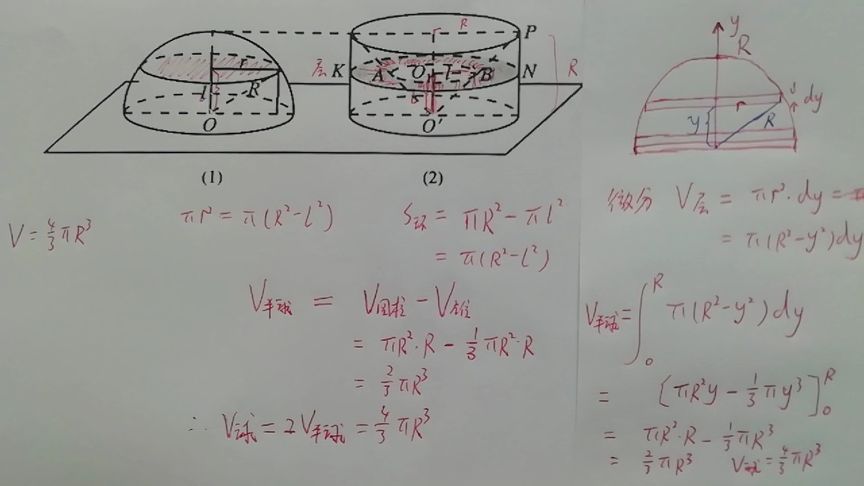 r
l
R
O
(1)
层
R
P
K
A
O
l
B
N
R
O'
(2)
V = 4/3 πR³
πr² = π(R²-l²)
S环 = πR² - πl²
= π(R²-l²)
V半球 = V圆柱 - V锥
= πR²·R - 1/3 πR²·R
= 2/3 πR³
∴ V球 = 2V半球 = 4/3 πR³
y
R
dy
r
y
R
微分 V层 = πr²·dy =
= π(R²-y²)dy
V半球 = ∫₀ᴿ π(R²-y²)dy
= [πR²y - 1/3 πy³]₀ᴿ
= πR²·R - 1/3 πR³
= 2/3 πR³ V球 = 4/3 πR³